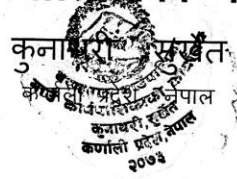 कुनाथरी सुर्खेत
कर्णाली प्रदेश, नेपाल
कार्यपालिकाको
कुनाथरी, सुर्खेत
कर्णाली प्रदेश, नेपाल
२०७३